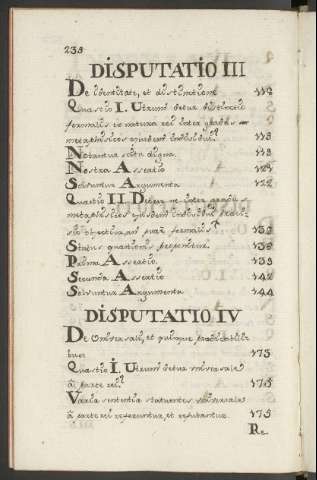 238
DISPUTATIO III
De identitate, et distinctione 112
Quæstio I. Utrum detur distinctio
formalis in natura rei inter gradus
metaphisicos ejusdem individui? 113
Notantur scitu digna. 113
Nostra Assertio 122
Solvuntur Argumenta 122
Quæstio II. Detur ne inter gradus
metaphisicos ejusdem individui præci-
sio objectiva, an pure formalis? 135
Status quæstionis proponitur. 135
Prima Assertio. 139
Secunda Assertio 142
Solvuntur Argumenta 144
DISPUTATIO IV
De Universali, et quinque prædicabili-
bus 173
Quæstio I. Utrum detur universale
à parte rei? 173
Varia sententia statuentes universale
à parte rei referuntur, et refutantur. 173
Re